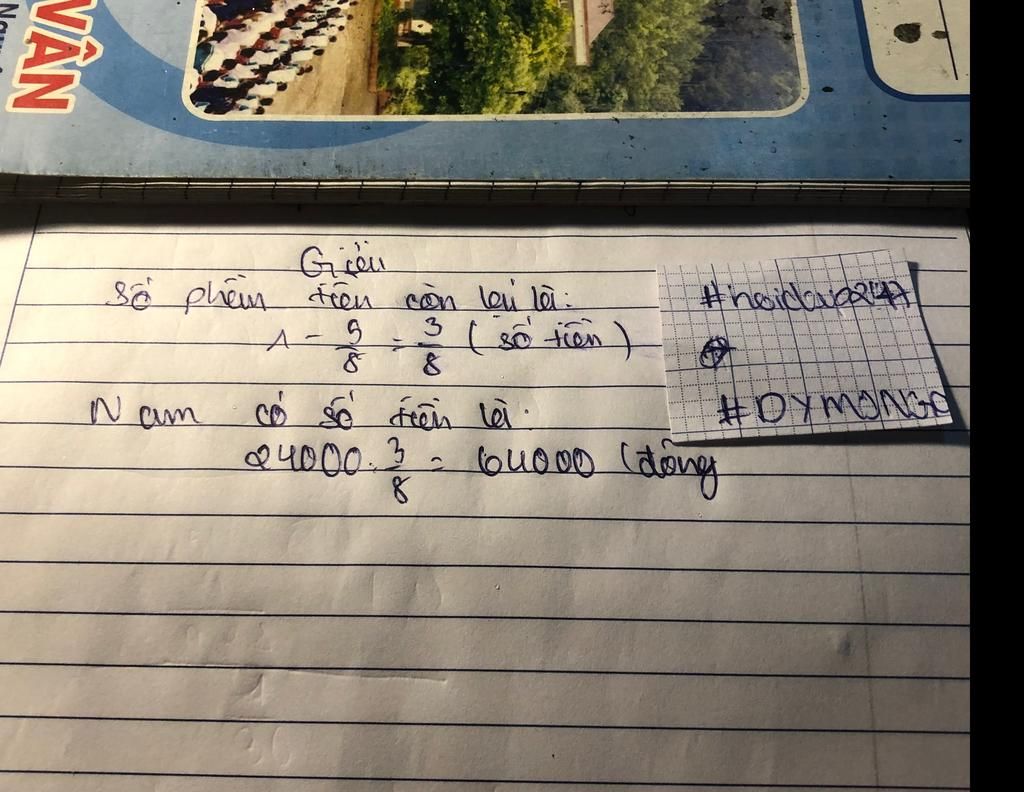 VÂN
Giải
Số phần tiền còn lại là:
1 - 5/8 = 3/8 (số tiền)
Nam có số tiền là:
24000 : 3/8 = 64000 (đồng
#hoidap247
#DYMONGO